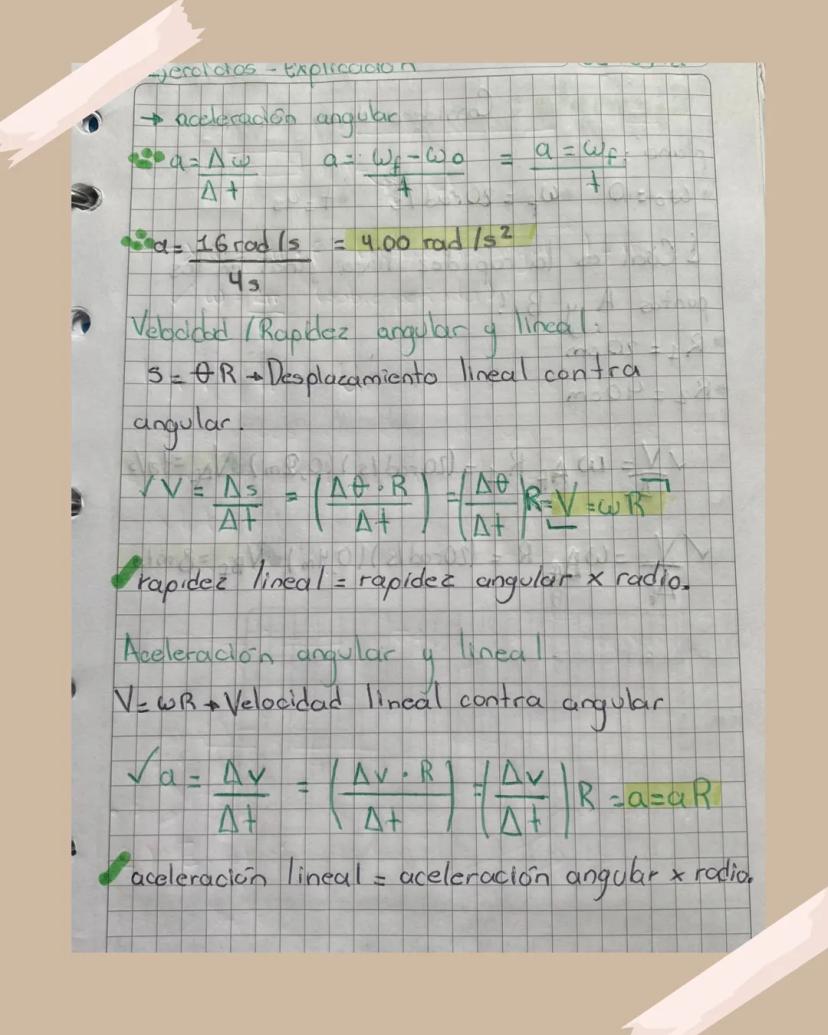 Ejercicios - Explicación
→ aceleración angular
a = Δω / Δt   a = ωf - ω0 / t = a = ωf / t
a = 16 rad/s / 4s = 4.00 rad/s²
Velocidad / Rapidez angular y lineal:
s = θR → Desplazamiento lineal contra
angular.
√ V = Δs / Δt = (Δθ · R / Δt) = (Δθ / Δt) R = V = ωR
rapidez lineal = rapidez angular x radio.
Aceleración angular y lineal.
V = ωR → Velocidad lineal contra angular
√ a = Δv / Δt = (Δv · R / Δt) = (Δv / Δt) R = a = aR
aceleración lineal = aceleración angular x radio.